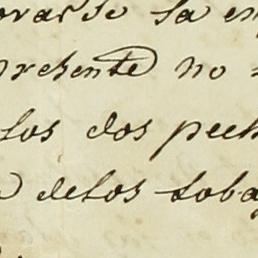 orarse la en
presente no
los dos pech
delos toba